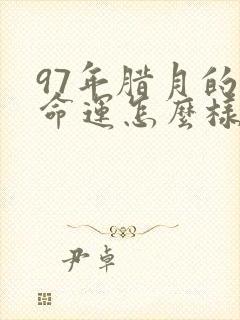 97年腊月的
命运怎麽样
尹卓